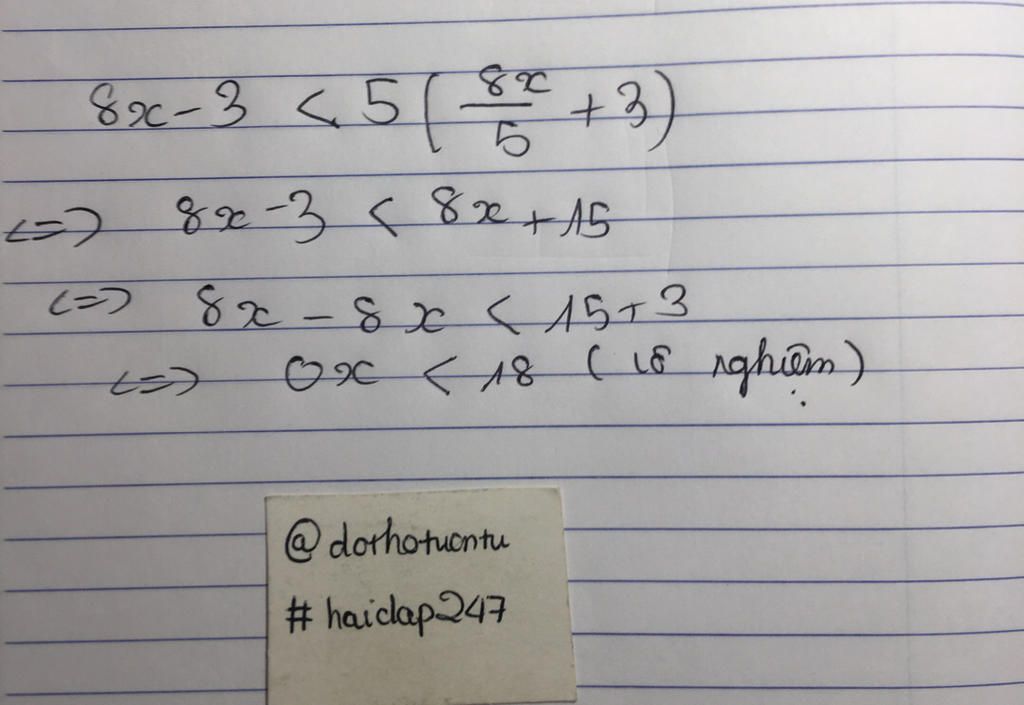 8x - 3 < 5 ( 8x/5 + 3 )
<=> 8x - 3 < 8x + 15
<=> 8x - 8x < 15 + 3
<=> 0x < 18 ( nghiệm )
@dothotuontu
# haidap247